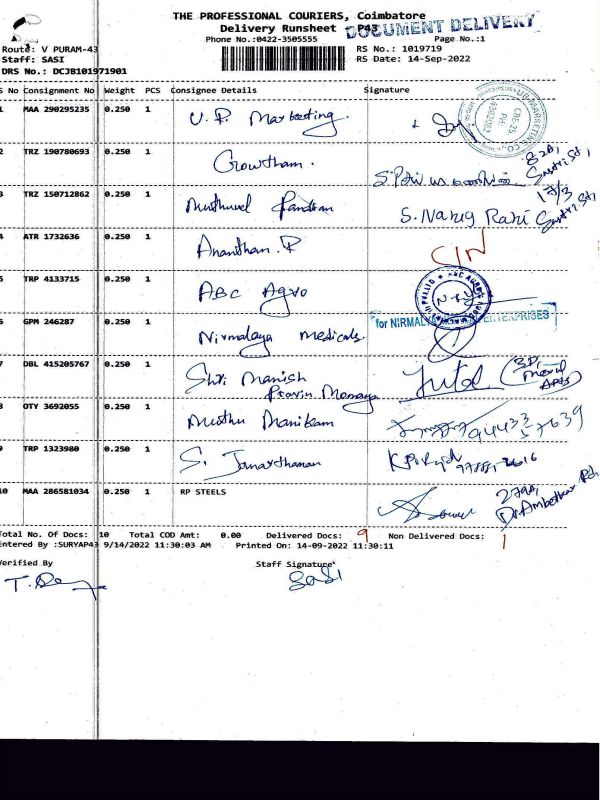 THE PROFESSIONAL COURIERS, Coimbatore
Delivery Runsheet P43
DOCUMENT DELIVERY
Phone No.:0422-3505555
Page No.:1
Route: V PURAM-43
RS No.: 1019719
Staff: SASI
RS Date: 14-Sep-2022
DRS No.: DCJB101971901
S No Consignment No Weight PCS Consignee Details Signature
1 MAA 290295235 0.250 1 V.P. Marketing
2 TRZ 190780693 0.250 1 Growtham. 82A, Sastri St,
3 TRZ 150712862 0.250 1 Muthuvel Pandian S. Narug Rani 17/3 Sastri St,
4 ATR 1732636 0.250 1 Anantham. P C/N
5 TRP 4133715 0.250 1 ABC Agro
6 GPM 246287 0.250 1 Nirmalaya Medicals for NIRMALYA ENTERPRISES
7 DBL 415205767 0.250 1 Shri Manish Pravin Monaya
8 OTY 3692055 0.250 1 Muthu Manikam 94433 57639
9 TRP 1323980 0.250 1 S. Janarthanan
10 MAA 286581034 0.250 1 RP STEELS 279A, Dr. Ambetkar Rd,
Total No. Of Docs: 10 Total COD Amt: 0.00 Delivered Docs: 9 Non Delivered Docs: 1
Entered By :SURYAP43 9/14/2022 11:30:03 AM Printed On: 14-09-2022 11:30:11
Verified By Staff Signature
SaSi